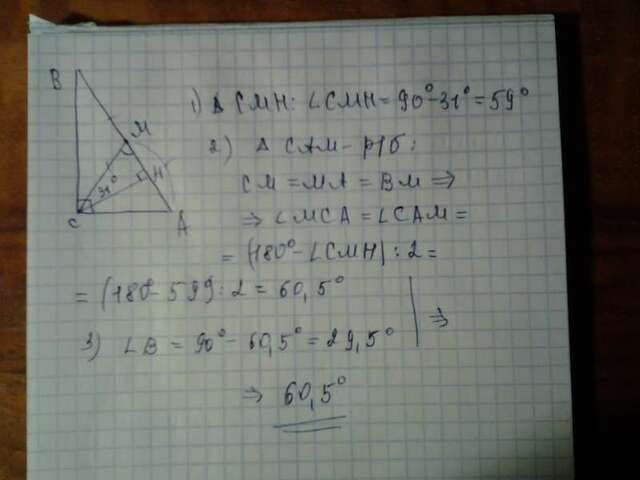 B
M
H
31°
C
A
1) Δ CMH: ∠CMH = 90° - 31° = 59°
2) Δ CAM - р/б:
CM = MA = BM ⇒
⇒ ∠MCA = ∠CAM =
= (180° - ∠CMH) : 2 =
= (180 - 59) : 2 = 60,5°
3) ∠B = 90° - 60,5° = 29,5° | ⇒
⇒ 60,5°